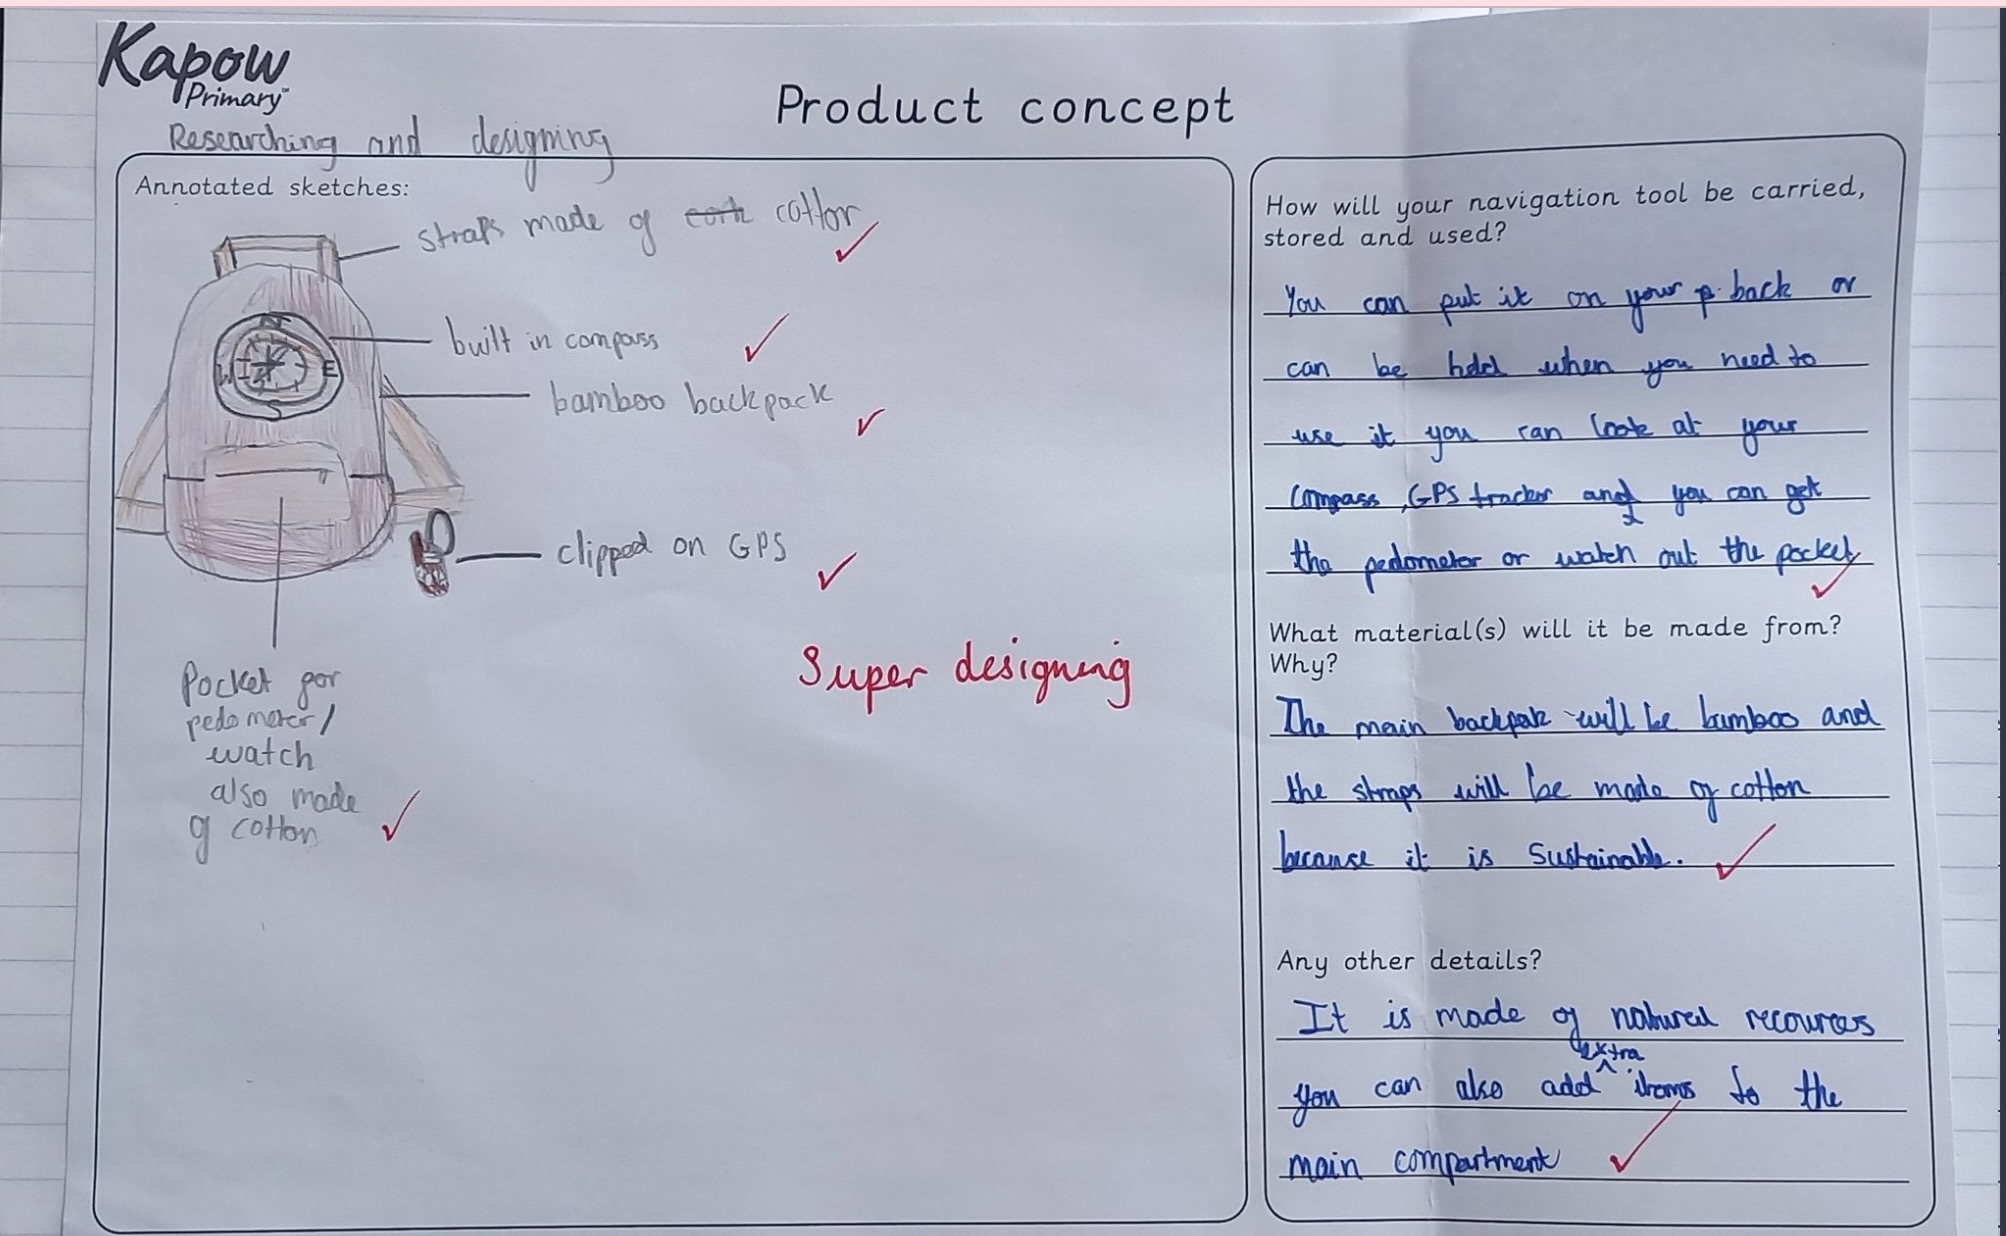 Kapow
Primary
Product concept
Researching and designing
Annotated sketches:
straps made of cork cotton
built in compass
bamboo backpack
clipped on GPS
Pocket for
pedometer/
watch
also made
of cotton
N
E
S
W
Super designing
How will your navigation tool be carried,
stored and used?
You can put it on your p back or
can be held when you need to
use it you can look at your
compass, GPS tracker and you can get
the pedometer or watch out the pocket
What material(s) will it be made from?
Why?
The main backpak will be bamboo and
the straps will be made of cotton
because it is Sustainable.
Any other details?
It is made of natural recources
extra
you can also add ^ items to the
main compartment